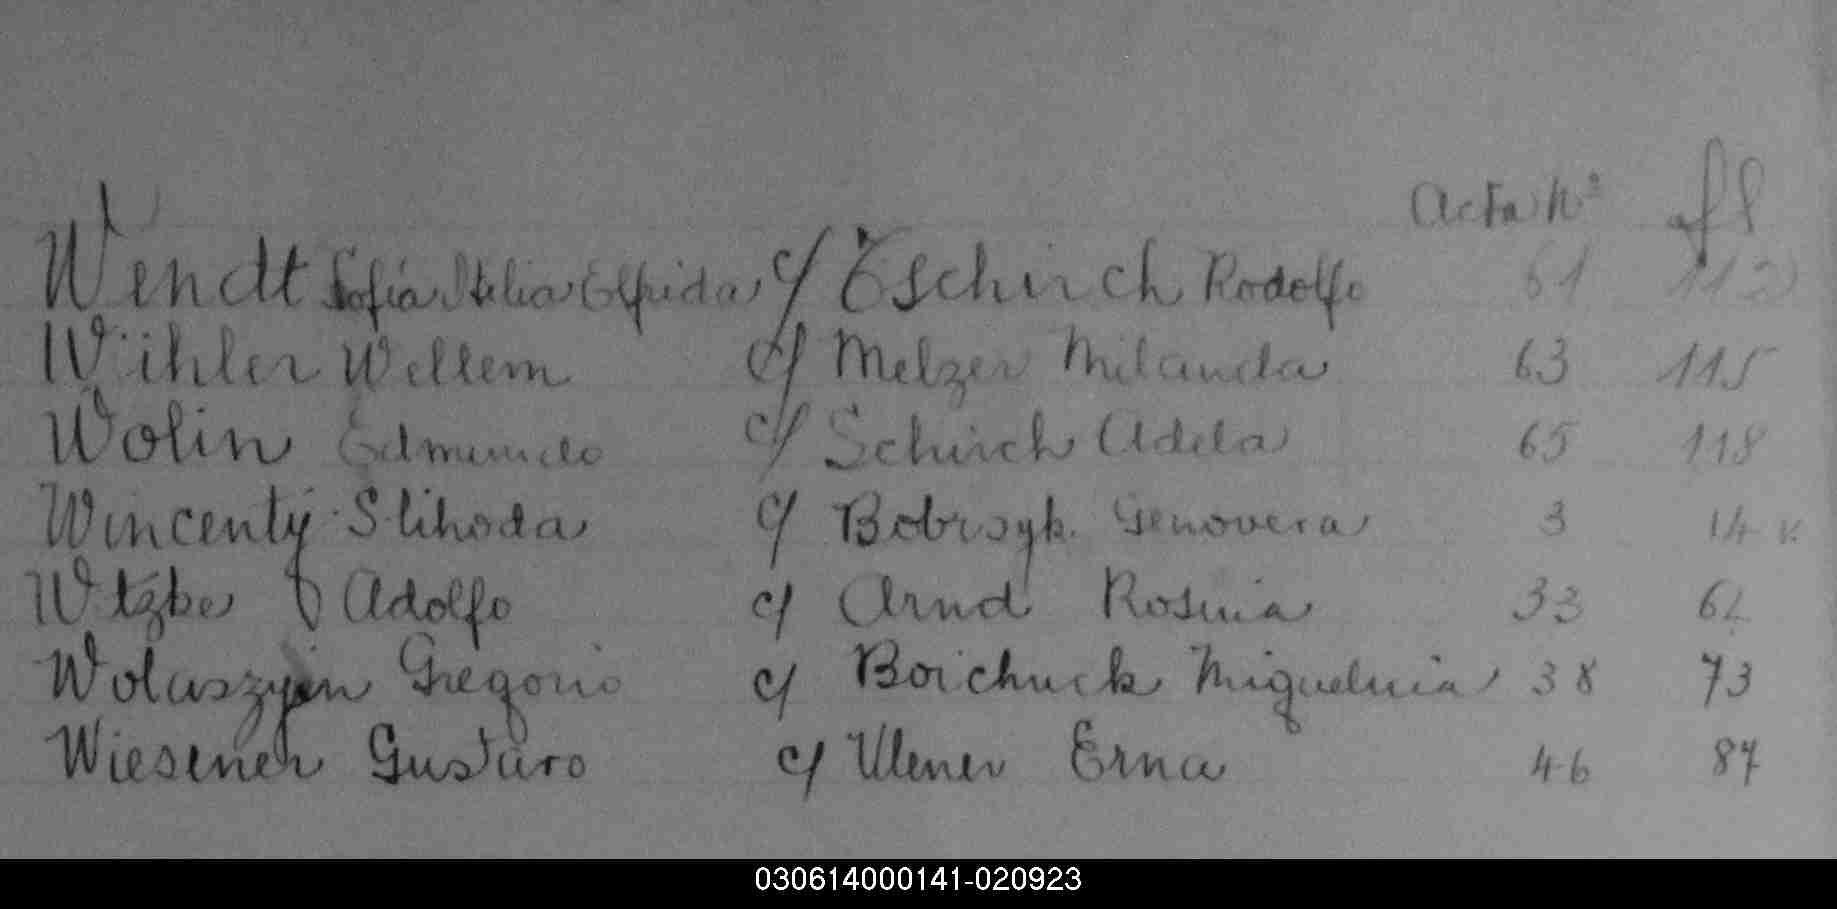 Acta Nº ffl
Wendt Sofía Otilia Elfrida c/ Tschirch Rodolfo 61 112
Wihler Wellem c/ Melzer Milanda 63 115
Wolin Edmundo c/ Schirch Adela 65 118
Wincenty Slihoda c/ Bobrsyk. Genovera 3 14 v.
Wtzke Adolfo c/ Arnd Rosina 33
Wolaszyin Gregorio c/ Boichuck Miguelina 38 73
Wiesener Gustavo c/ Ulener Erna 46 87
030614000141-020923